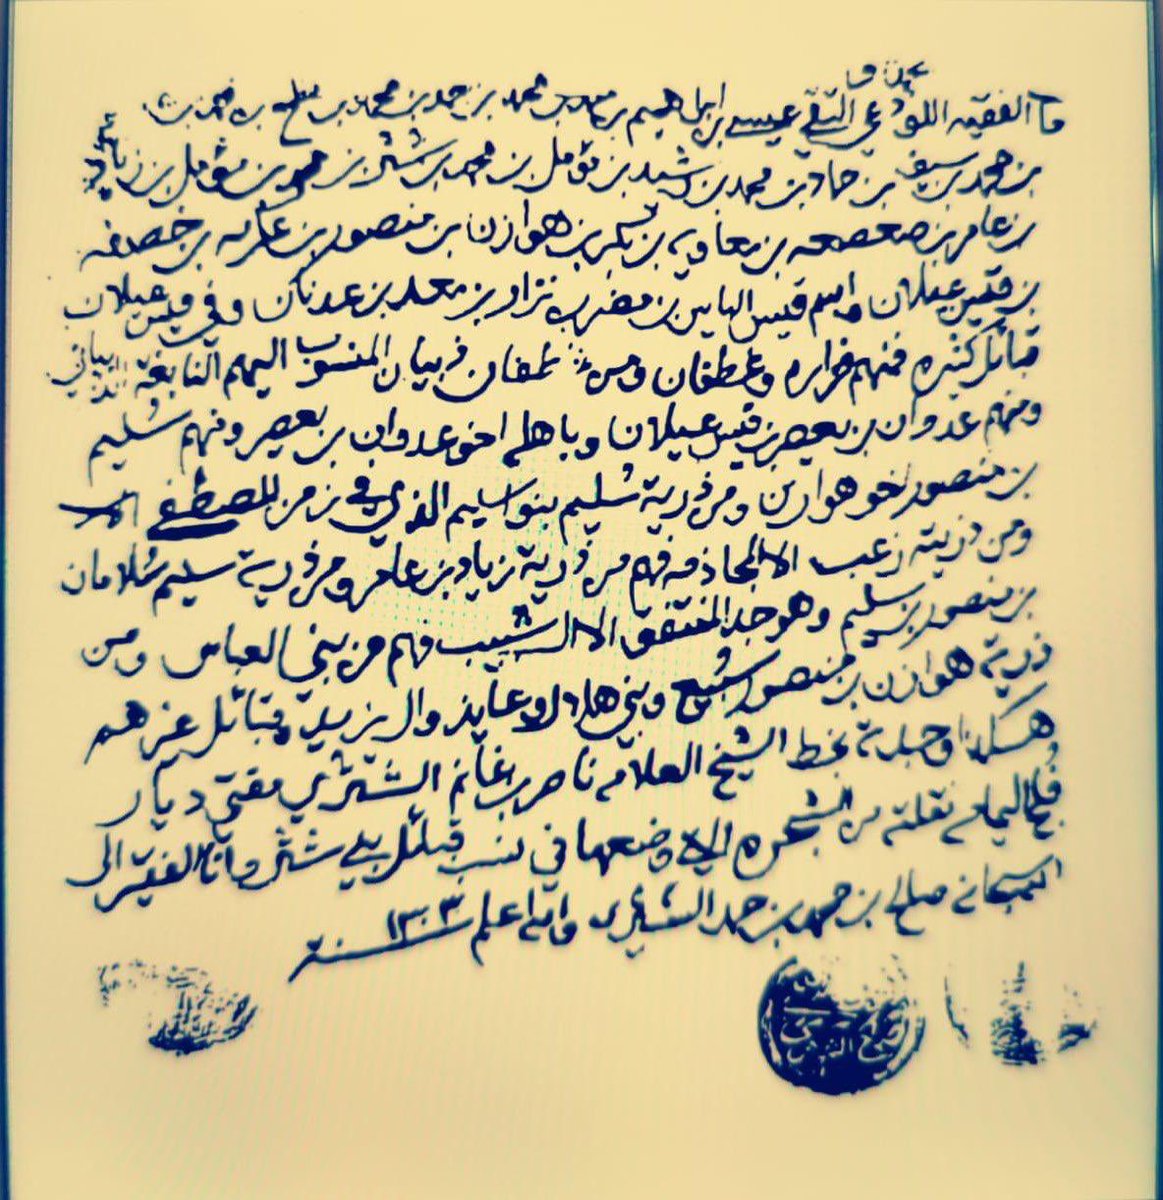 قال الفقيه اللوذعي التقي عيسى بن ابراهيم بن محمد بن محمد بن حمد بن محمد بن بن محمد بن
بن حمد بن سيف بن حماد بن محمد بن رشيد بن مؤمل بن محمد بن شثر بن بن مؤمل بن زياد
بن عامر بن صعصعه بن معاويه بن بكر بن هوازن بن منصور بن عكرمه بن خصفه
بن قيس عيلان واسم قيس الياس بن مضر بن نزار بن معد بن عدنان وفي قيس عيلان
قبائل كثيره فمنهم فزاره وغطفان ومن غطفان ذبيان المنسوب اليهم النابغة الذبياني
ومنهم عدوان بن يعصر بن قيس عيلان وباهله اخو عدوان بن يعصر ومنهم سليم
بن منصور اخو هوازن ومن ذرية سليم بنو سليم الذي في زمن المصطفى
ومن ذريته زعب الا الجاذمه فهم من ذرية زياد بن عامر ومن ذرية سليم سلامان
بن منصور بن سليم وهو جد المنتفق الا ال شبيب فهم من بني العباس ومن
ذرية هوازن بن منصور سبيع وبني هلال وعايذ وال يزيد وقبائل غيرهم
هكذا وجدته بخط الشيخ العلامه ناصر بن غانم الشثري مفتي ديار
اليمامه نقلته من الشجره التي وضعها في نسب قبائل بني شثر وانا الفقير الى
صالح بن حمد بن حمد الشثري والله اعلم ١٣٠٣ سنة